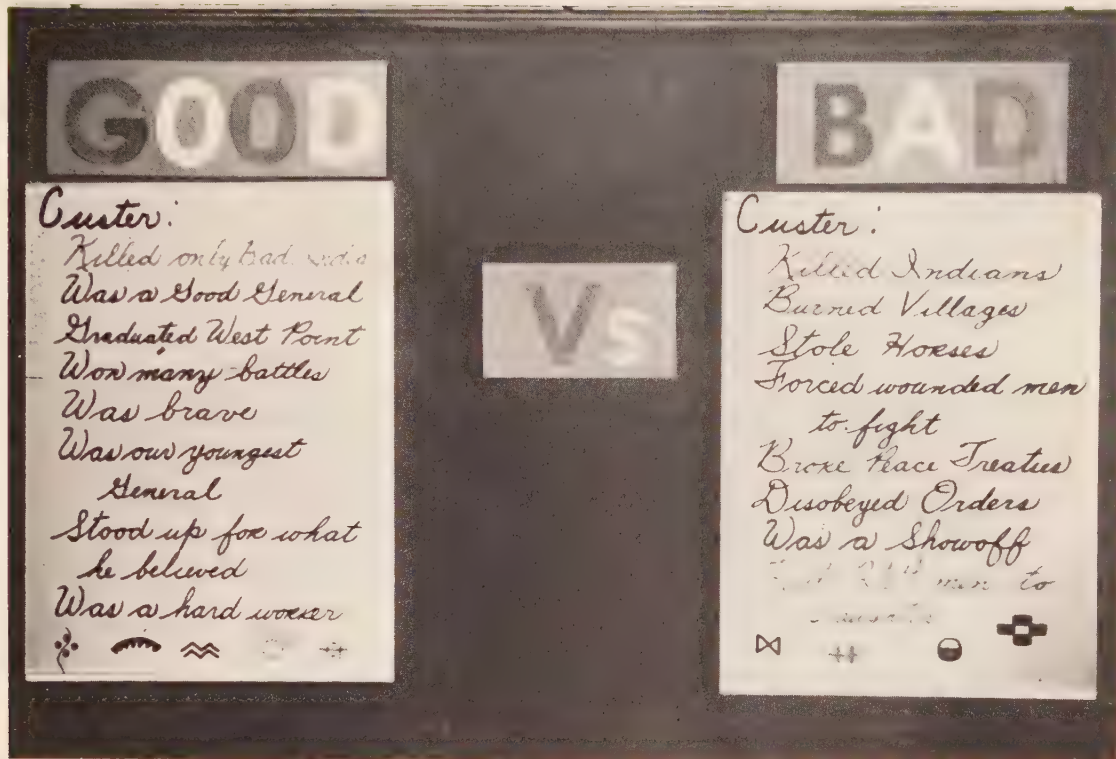 GOOD
Custer:
Killed only bad
Was a Good General
Graduated West Point
Won many battles
Was brave
Was our youngest
General
Stood up for what
he believed
Was a hard worker
Vs
BAD
Custer:
Killed Indians
Burned Villages
Stole Horses
Forced wounded men
to fight
Broke Peace Treaties
Disobeyed Orders
Was a Showoff
men to